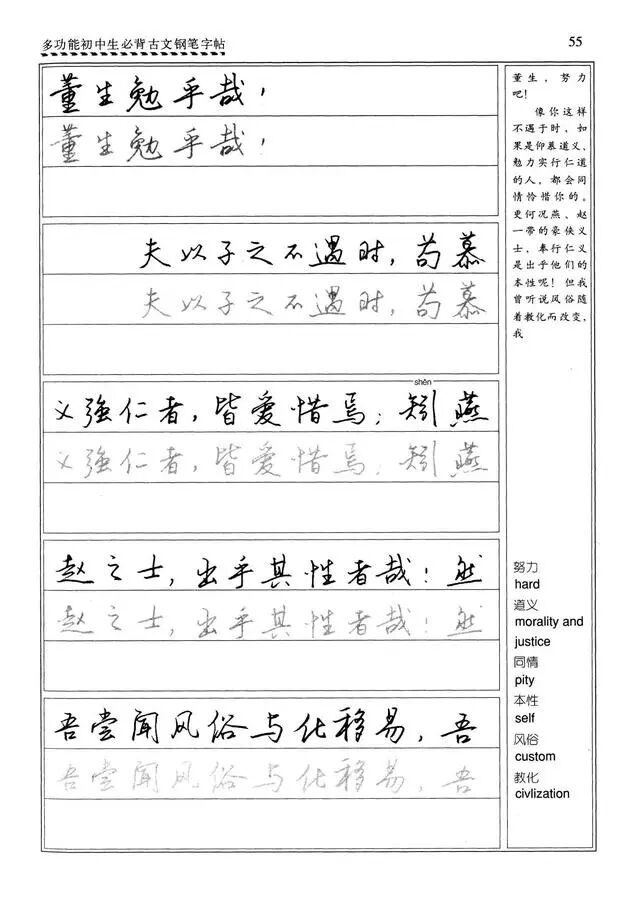 多功能初中生必背古文钢笔字帖
55
董生勉乎哉！
董生勉乎哉！
夫以子之不遇时，苟慕
夫以子之不遇时，苟慕
shěn
义强仁者，皆爱惜焉；矧燕
义强仁者，皆爱惜焉；矧燕
赵之士，出乎其性者哉！然
赵之士，出乎其性者哉！然
吾尝闻风俗与化移易，吾
吾尝闻风俗与化移易，吾
董生，努力
吧！
像你这样
不遇于时，如
果是仰慕道义、
勉力实行仁道
的人，都会同
情怜惜你的。
更何况燕、赵
一带的豪侠义
士，奉行仁义
是出乎他们的
本性呢！但我
曾听说风俗随
着教化而改变，
我
努力
hard
道义
morality and
justice
同情
pity
本性
self
风俗
custom
教化
civlization